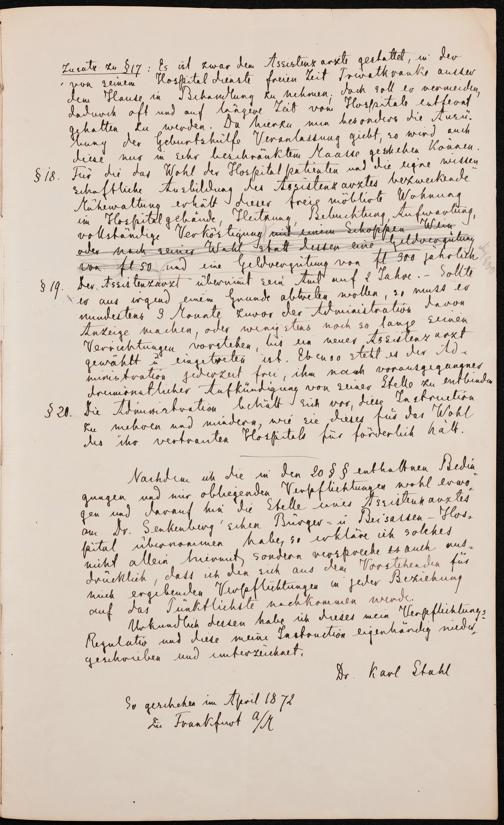 Zusatz zu § 17: Es ist zwar dem Assistenzarzte gestattet, in der
von seinem Hospitaldienste freien Zeit Privatkranke ausser
dem Hause in Behandlung zu nehmen, doch soll er vermeiden,
dadurch oft und auf längere Zeit vom Hospitale entfernt
gehalten zu werden. Da hierzu nun besonders die Ausü-
bung der Geburtshilfe Veranlassung giebt, so wird auch
diese nur in sehr beschränktem Maasse geschehen können.
§ 18. Für die das Wohl der Hospitalpatienten und die eigne wissen
schaftliche Ausbildung des Assistenzarztes bezweckende
Mühewaltung erhält dieser freie möblirte Wohnung
im Hospitalgebäude, Heitzung, Beleuchtung, Aufwartung,
vollständige Verköstigung mit einem Schoppen Wein
oder nach seiner Wahl statt dessen eine Geldvergütung
von fl 50 und eine Geldvergütung von fl 300 jährlich.
§ 19. Der Assistenzarzt übernimt sein Amt auf 2 Jahre. – Sollte
er aus irgend einem Grunde abtreten wollen, so muss er
mindestens 3 Monate zuvor der Administration davon
Anzeige machen, oder wenigstens noch so lange seinen
Verrichtungen vorstehen, bis ein neuer Assistenzarzt
gewählt & eingetreten ist. Ebenso steht es der Ad-
ministration jederzeit frei, ihn nach vorausgegangner
dreimonatlicher Aufkündigung von seiner Stelle zu entbinden
§ 20. Die Administration behält sich vor, diese Instruction
zu mehren und mindern, wie sie dieses für das Wohl
des ihr vertrauten Hospitals für förderlich hält.
Nachdem ich die in den 20 §§ enthaltnen Bedin
gungen und mir obliegenden Verpflichtungen wohl erwo-
gen und darauf hin die Stelle eines Assistenzarztes
am Dr. Senkenberg'schen Bürger- u Beisassen-Hos-
pital übernommen habe, so erkläre ich solches
nicht allein hiermit, sondern verspreche es auch aus-
drücklich, dass ich den sich aus dem Vorstehenden für
mich ergebenden Verpflichtungen in jeder Beziehung
auf das Pünktlichste nachkommen werde.
Urkundlich dessen habe ich dieses mein Verpflichtungs-
Regulativ und diese meine Instruction eigenhändig nieder-
geschrieben und unterzeichnet.
Dr. Karl Stahl
So geschehen im April 1872
Zu Frankfurt a/M